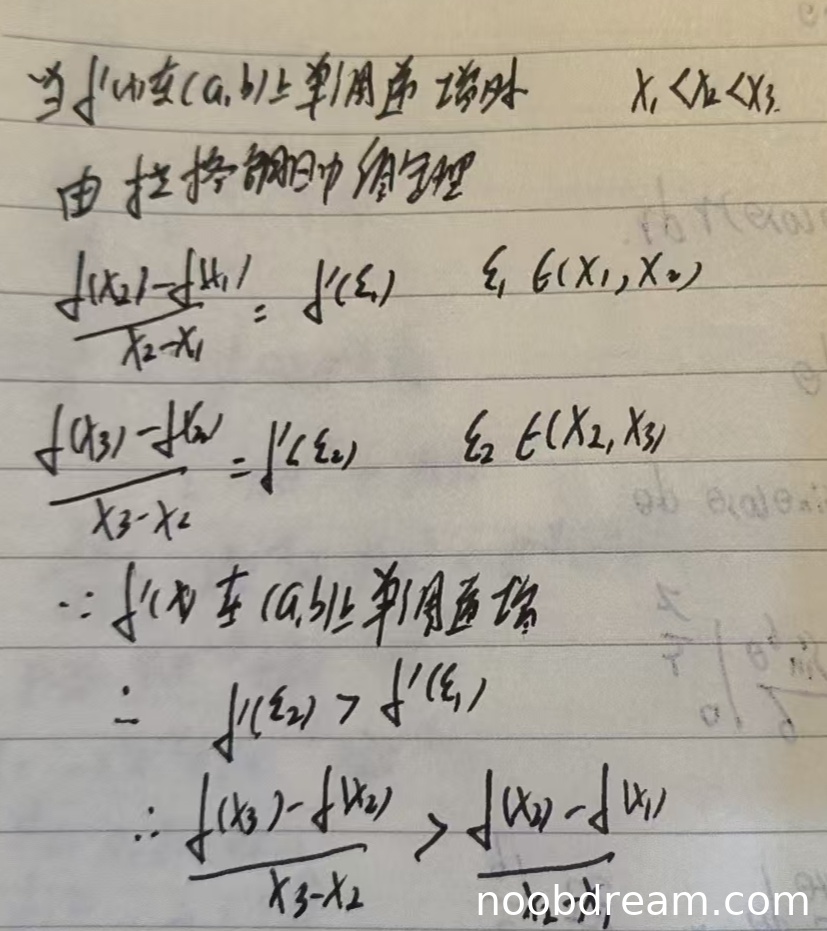 当f'(x)在(a,b)上单调递增时 x₁<x₂<x₃.
由拉格朗日中值定理
\frac{f(x₂)-f(x₁)}{x₂-x₁} = f'(ξ₁) ξ₁∈(x₁,x₂)
\frac{f(x₃)-f(x₂)}{x₃-x₂} = f'(ξ₂) ξ₂∈(x₂,x₃)
∵ f'(x)在(a,b)上单调递增
∴ f'(ξ₂) > f'(ξ₁)
∴ \frac{f(x₃)-f(x₂)}{x₃-x₂} > \frac{f(x₂)-f(x₁)}{x₂-x₁}
noobdream.com